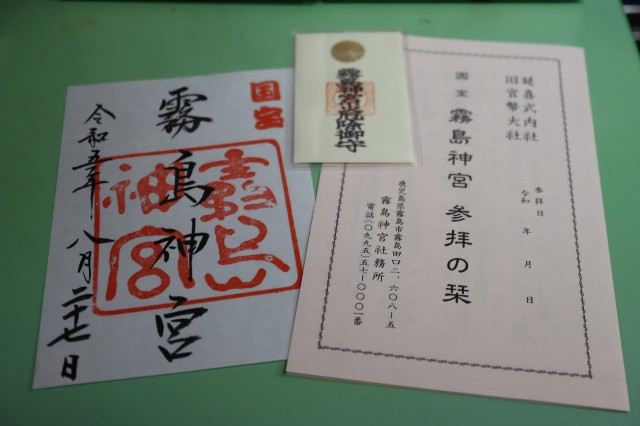 延喜式内社
旧官幣大社
国宝 霧島神宮 参拝の栞
参拝日
令和 年 月 日
鹿児島県霧島市霧島田口二、六〇八−五
霧島神宮社務所
電話(〇九九五)五七−〇〇〇一番
霧島神宮厄除御守
国宝
霧島神宮
霧島神宮
令和五年 八月二十七日